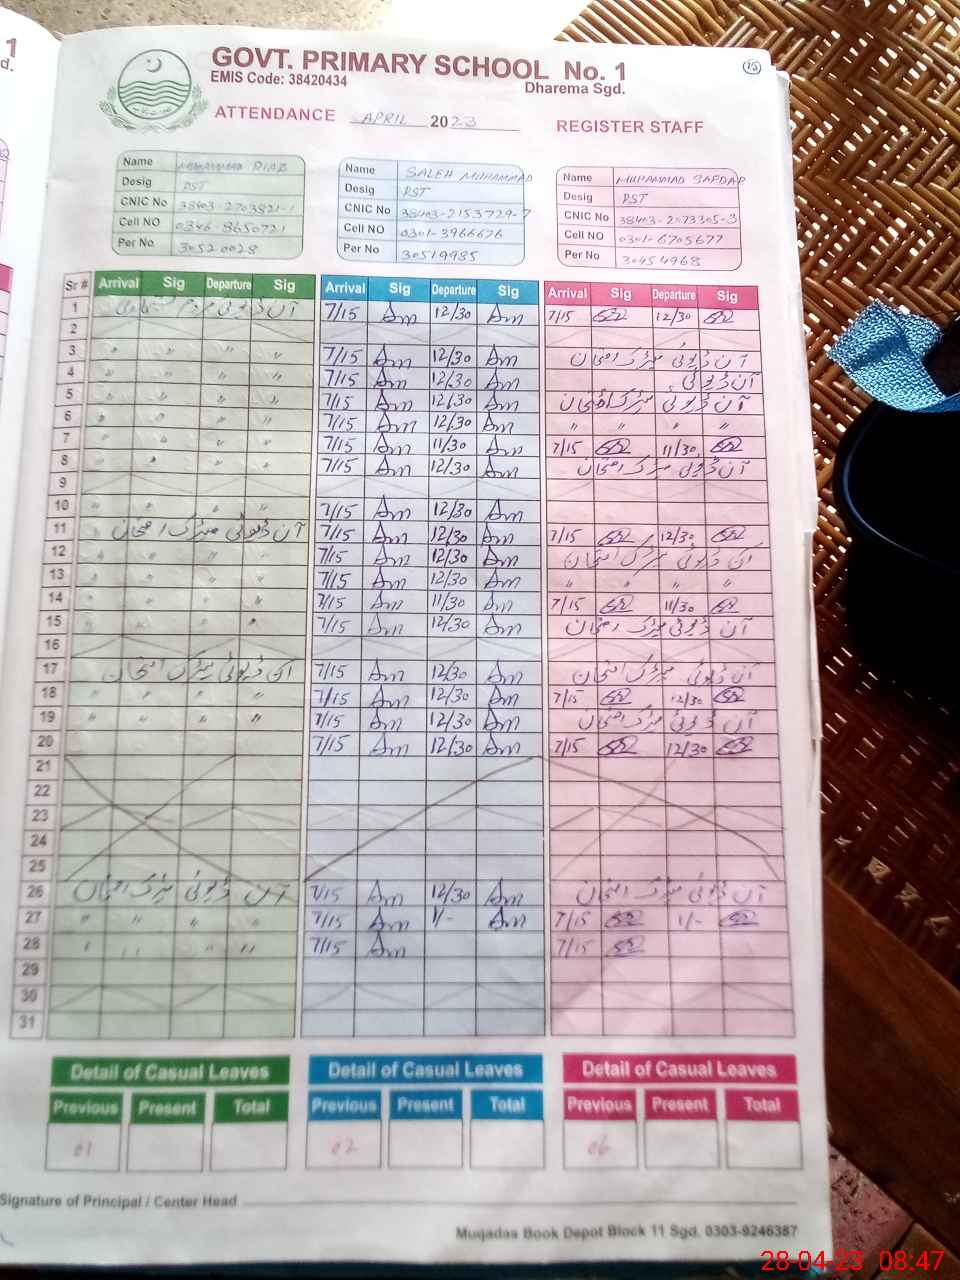 1
d.
15
GOVT. PRIMARY SCHOOL No. 1
EMIS Code: 38420434
Dharema Sgd.
ATTENDANCE APRIL 2023 REGISTER STAFF
Name MUHAMMAD RIAZ
Desig PST
CNIC No 38403-2703821-1
Cell NO 0346-8650721
Per No 30520028
Name SALEH MUHAMMAD
Desig PST
CNIC No 38403-2153729-7
Cell NO 0301-3966676
Per No 30519985
Name MUHAMMAD SAFDAR
Desig PST
CNIC No 38403-2073305-3
Cell NO 0301-6705677
Per No 30454968
Sr # Arrival Sig Departure Sig Arrival Sig Departure Sig Arrival Sig Departure Sig
1 آن ڈیوٹی 7/15 Am 12/30 Am 7/15 12/30
2
3 " " " " 7/15 Am 12/30 Am آن ڈیوٹی میٹرک امتحان
4 " " " " 7/15 Am 12/30 Am آن ڈیوٹی
5 " " " " 7/15 Am 12/30 Am آن ڈیوٹی میٹرک امتحان
6 " " " " 7/15 Am 12/30 Am " " " "
7 " " " " 7/15 Am 11/30 Am 7/15 11/30
8 " " " " 7/15 Am 12/30 Am آن ڈیوٹی میٹرک امتحان
9
10 " " " " 7/15 Am 12/30 Am
11 آن ڈیوٹی میٹرک امتحان 7/15 Am 12/30 Am 7/15 12/30
12 " " " " 7/15 Am 12/30 Am آن ڈیوٹی میٹرک امتحان
13 " " " " 7/15 Am 12/30 Am " " " "
14 " " " " 7/15 Am 11/30 Am 7/15 11/30
15 " " " " 7/15 Am 12/30 Am آن ڈیوٹی میٹرک امتحان
16
17 آن ڈیوٹی میٹرک امتحان 7/15 Am 12/30 Am آن ڈیوٹی میٹرک امتحان
18 " " " " 7/15 Am 12/30 Am 7/15 12/30
19 " " " " 7/15 Am 12/30 Am آن ڈیوٹی میٹرک امتحان
20 7/15 Am 12/30 Am 7/15 12/30
21
22
23
24
25
26 آن ڈیوٹی میٹرک امتحان 7/15 Am 12/30 Am آن ڈیوٹی میٹرک امتحان
27 " " " " 7/15 Am 1/- Am 7/15 1/-
28 " " " " 7/15 Am 7/15
29
30
31
Detail of Casual Leaves Detail of Casual Leaves Detail of Casual Leaves
Previous Present Total Previous Present Total Previous Present Total
01 02 06
Signature of Principal / Center Head
Muqadas Book Depot Block 11 Sgd. 0303-9246387
28-04-23 08:47